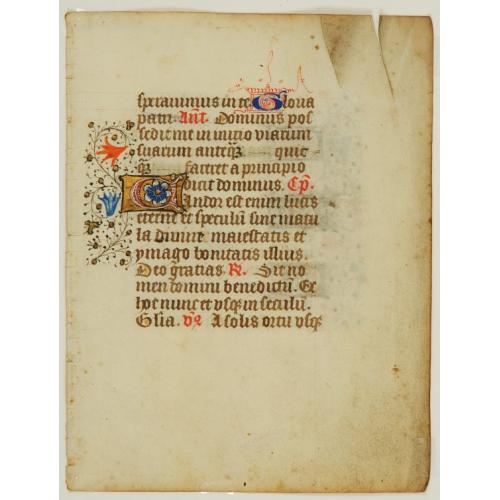 sperauimus in te Gloria
patri. Añt. Dominus pos
sedit me in inicio viarum
suarum anteq̃ quic
q̃ faceret a principio
dicit dominus. Cp̃.
Candor est enim lucis
eterne et speculũ sine macu
la diuine maiestatis et
ymago bonitatis illius.
Deo gratias. R. Sit no
men domini benedictũ. Ex
hoc nunc et vsq̃ in seculũ.
Glia. v̾ A solis ortu vsq̃